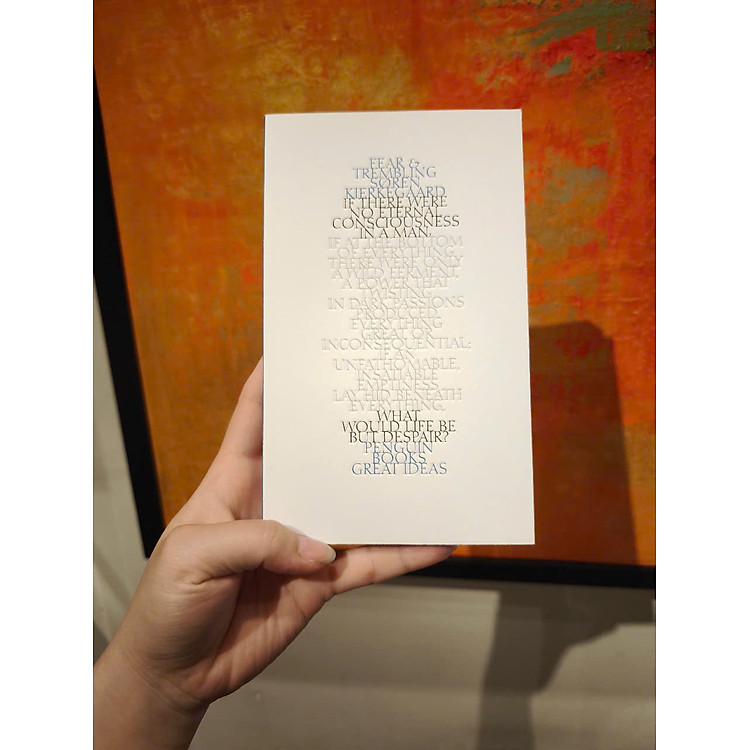 FEAR &
TREMBLING
SØREN
KIERKEGAARD
IF THERE WERE
NO ETERNAL
CONSCIOUSNESS
IN A MAN,
IF AT THE BOTTOM
OF EVERYTHING
THERE WERE ONLY
A WILD FERMENT,
A POWER THAT
TWISTING
IN DARK PASSIONS
PRODUCED
EVERYTHING
GREAT OR
INCONSEQUENTIAL;
IF AN
UNFATHOMABLE,
INSATIABLE
EMPTINESS
LAY HID BENEATH
EVERYTHING,
WHAT
WOULD LIFE BE
BUT DESPAIR?
PENGUIN
BOOKS
GREAT IDEAS